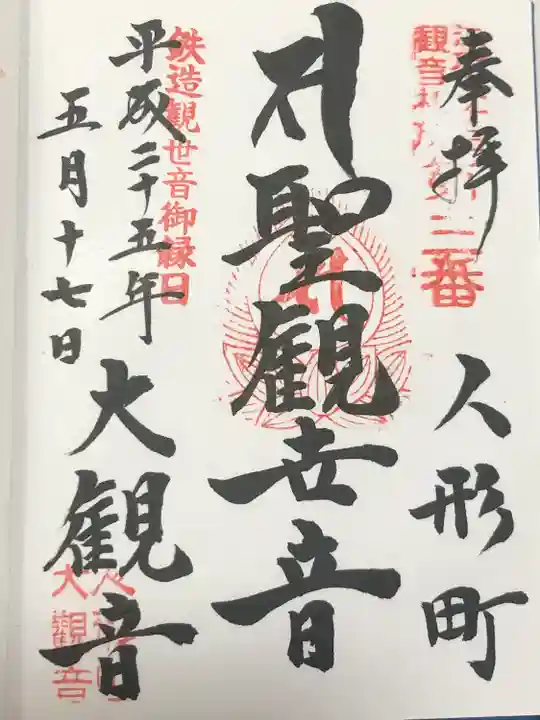 奉拝
人形町
聖観世音
平成二十五年
五月十七日
大観音
三番
鉄造観世音御縁日
大観音